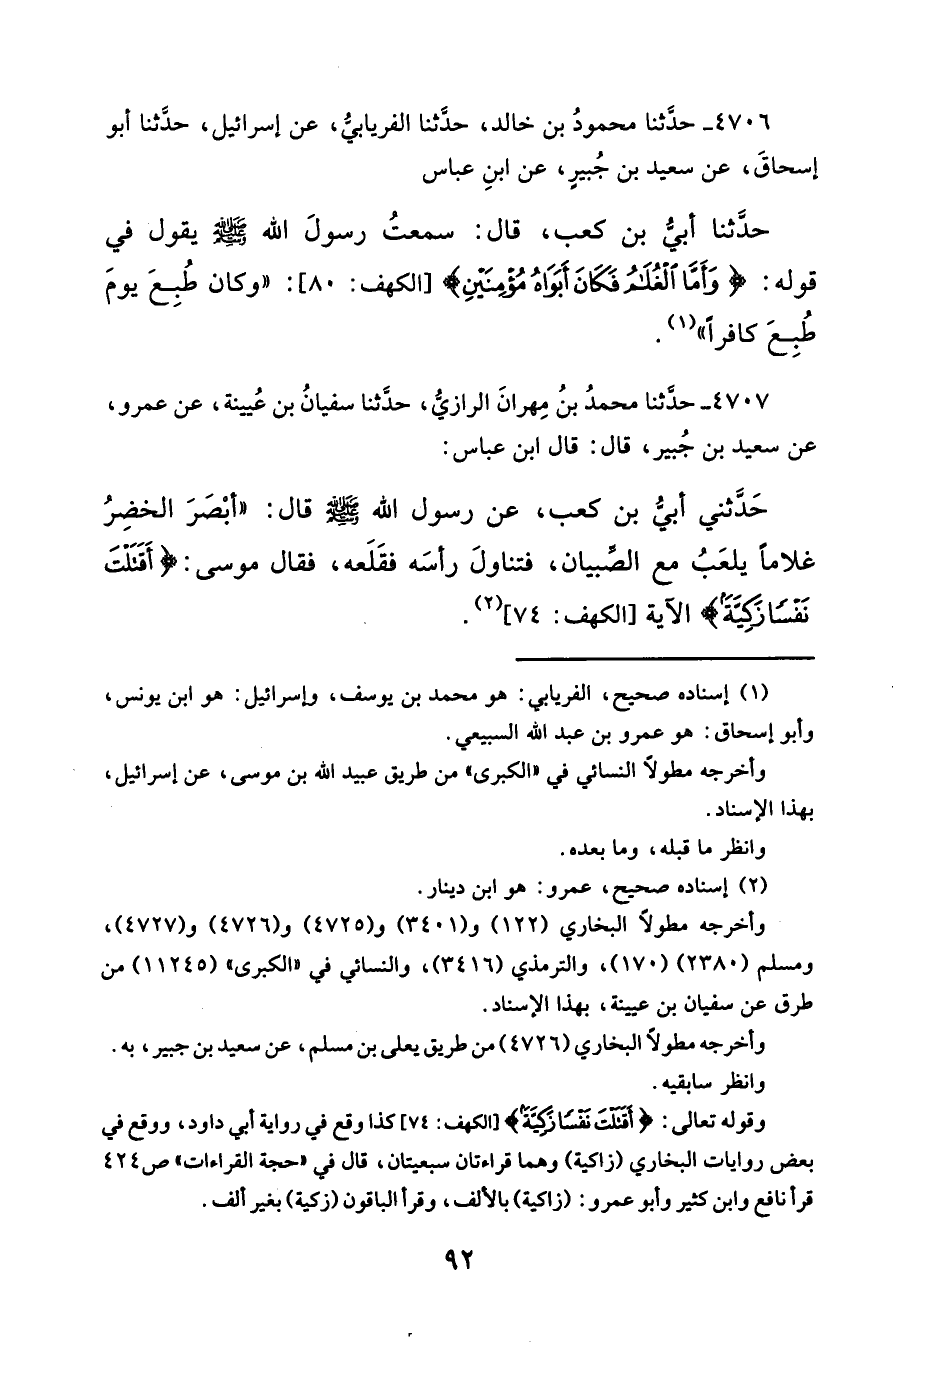 ٤٧٠٦ـ حدَّثنا محمودُ بن خالد، حدَّثنا الفريابيُّ، عن إسرائيل، حدَّثنا أبو
إسحاقَ، عن سعيد بن جُبيرٍ، عن ابنِ عباس
حدَّثنا أبيُّ بن كعب، قال: سمعتُ رسولَ الله ﷺ يقول في
قوله: ﴿ وَأَمَّا ٱلْغُلَـٰمُ فَكَانَ أَبَوَاهُ مُؤْمِنَيْنِ﴾ [الكهف: ٨٠]: «وكان طُبِـعَ يومَ
طُبِـعَ كافراً»(١).
٤٧٠٧ـ حدَّثنا محمدُ بنُ مِهرانَ الرازيُّ، حدَّثنا سفيانُ بن عُيينة، عن عمرو،
عن سعيد بن جُبير، قال: قال ابن عباس:
حَدَّثني أبيُّ بن كعب، عن رسول الله ﷺ قال: «أبْصَرَ الخضِرُ
غلاماً يلعَبُ مع الصِّبيان، فتناولَ رأسَه فقَلَعه، فقال موسى: ﴿ أَقَتَلْتَ
نَفْسًا زَكِيَّةَۢ﴾ الآية [الكهف: ٧٤](٢).
(١) إسناده صحيح، الفريابي: هو محمد بن يوسف، وإسرائيل: هو ابن يونس،
وأبو إسحاق: هو عمرو بن عبد الله السبيعي.
وأخرجه مطولاً النسائي في «الكبرى» من طريق عبيد الله بن موسى، عن إسرائيل،
بهذا الإسناد.
وانظر ما قبله، وما بعده.
(٢) إسناده صحيح، عمرو: هو ابن دينار.
وأخرجه مطولاً البخاري (١٢٢) و(٣٤٠١) و(٤٧٢٥) و(٤٧٢٦) و(٤٧٢٧)،
ومسلم (٢٣٨٠) (١٧٠)، والترمذي (٣٤١٦)، والنسائي في «الكبرى» (١١٢٤٥) من
طرق عن سفيان بن عيينة، بهذا الإسناد.
وأخرجه مطولاً البخاري (٤٧٢٦) من طريق يعلى بن مسلم، عن سعيد بن جبير، به.
وانظر سابقيه.
وقوله تعالى: ﴿ أَقَتَلْتَ نَفْسًا زَكِيَّةَۢ﴾ [الكهف: ٧٤] كذا وقع في رواية أبي داود، ووقع في
بعض روايات البخاري (زاكية) وهما قراءتان سبعيتان، قال في «حجة القراءات» ص٤٢٤
قرأ نافع وابن كثير وأبو عمرو: (زاكية) بالألف، وقرأ الباقون (زكية) بغير ألف.
٩٢